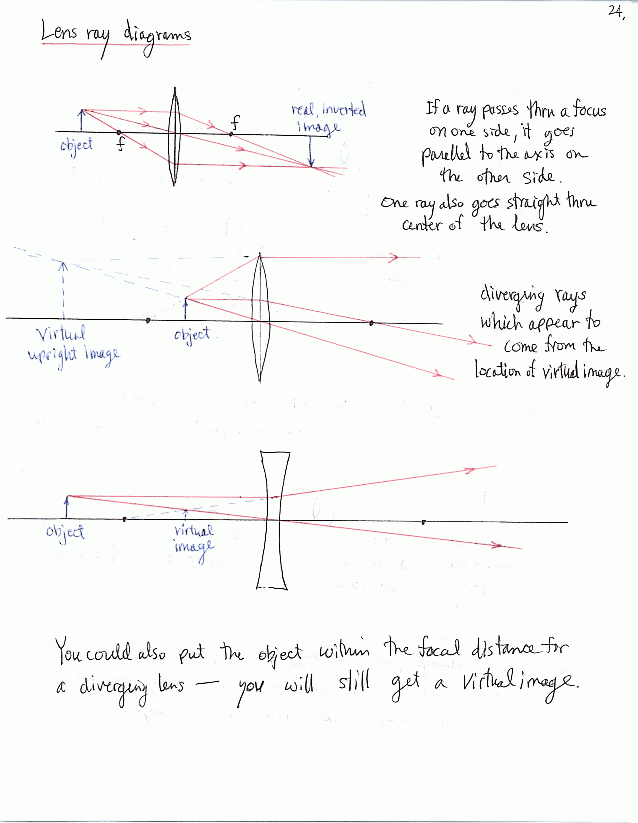 24.
Lens ray diagrams
real, inverted
image
f
object
f
If a ray passes thru a focus
on one side, it goes
parallel to the axis on
the other side.
One ray also goes straight thru
center of the lens.
Virtual
upright image
object
diverging rays
which appear to
come from the
location of virtual image.
object
virtual
image
You could also put the object within the focal distance for
a diverging lens — you will still get a virtual image.